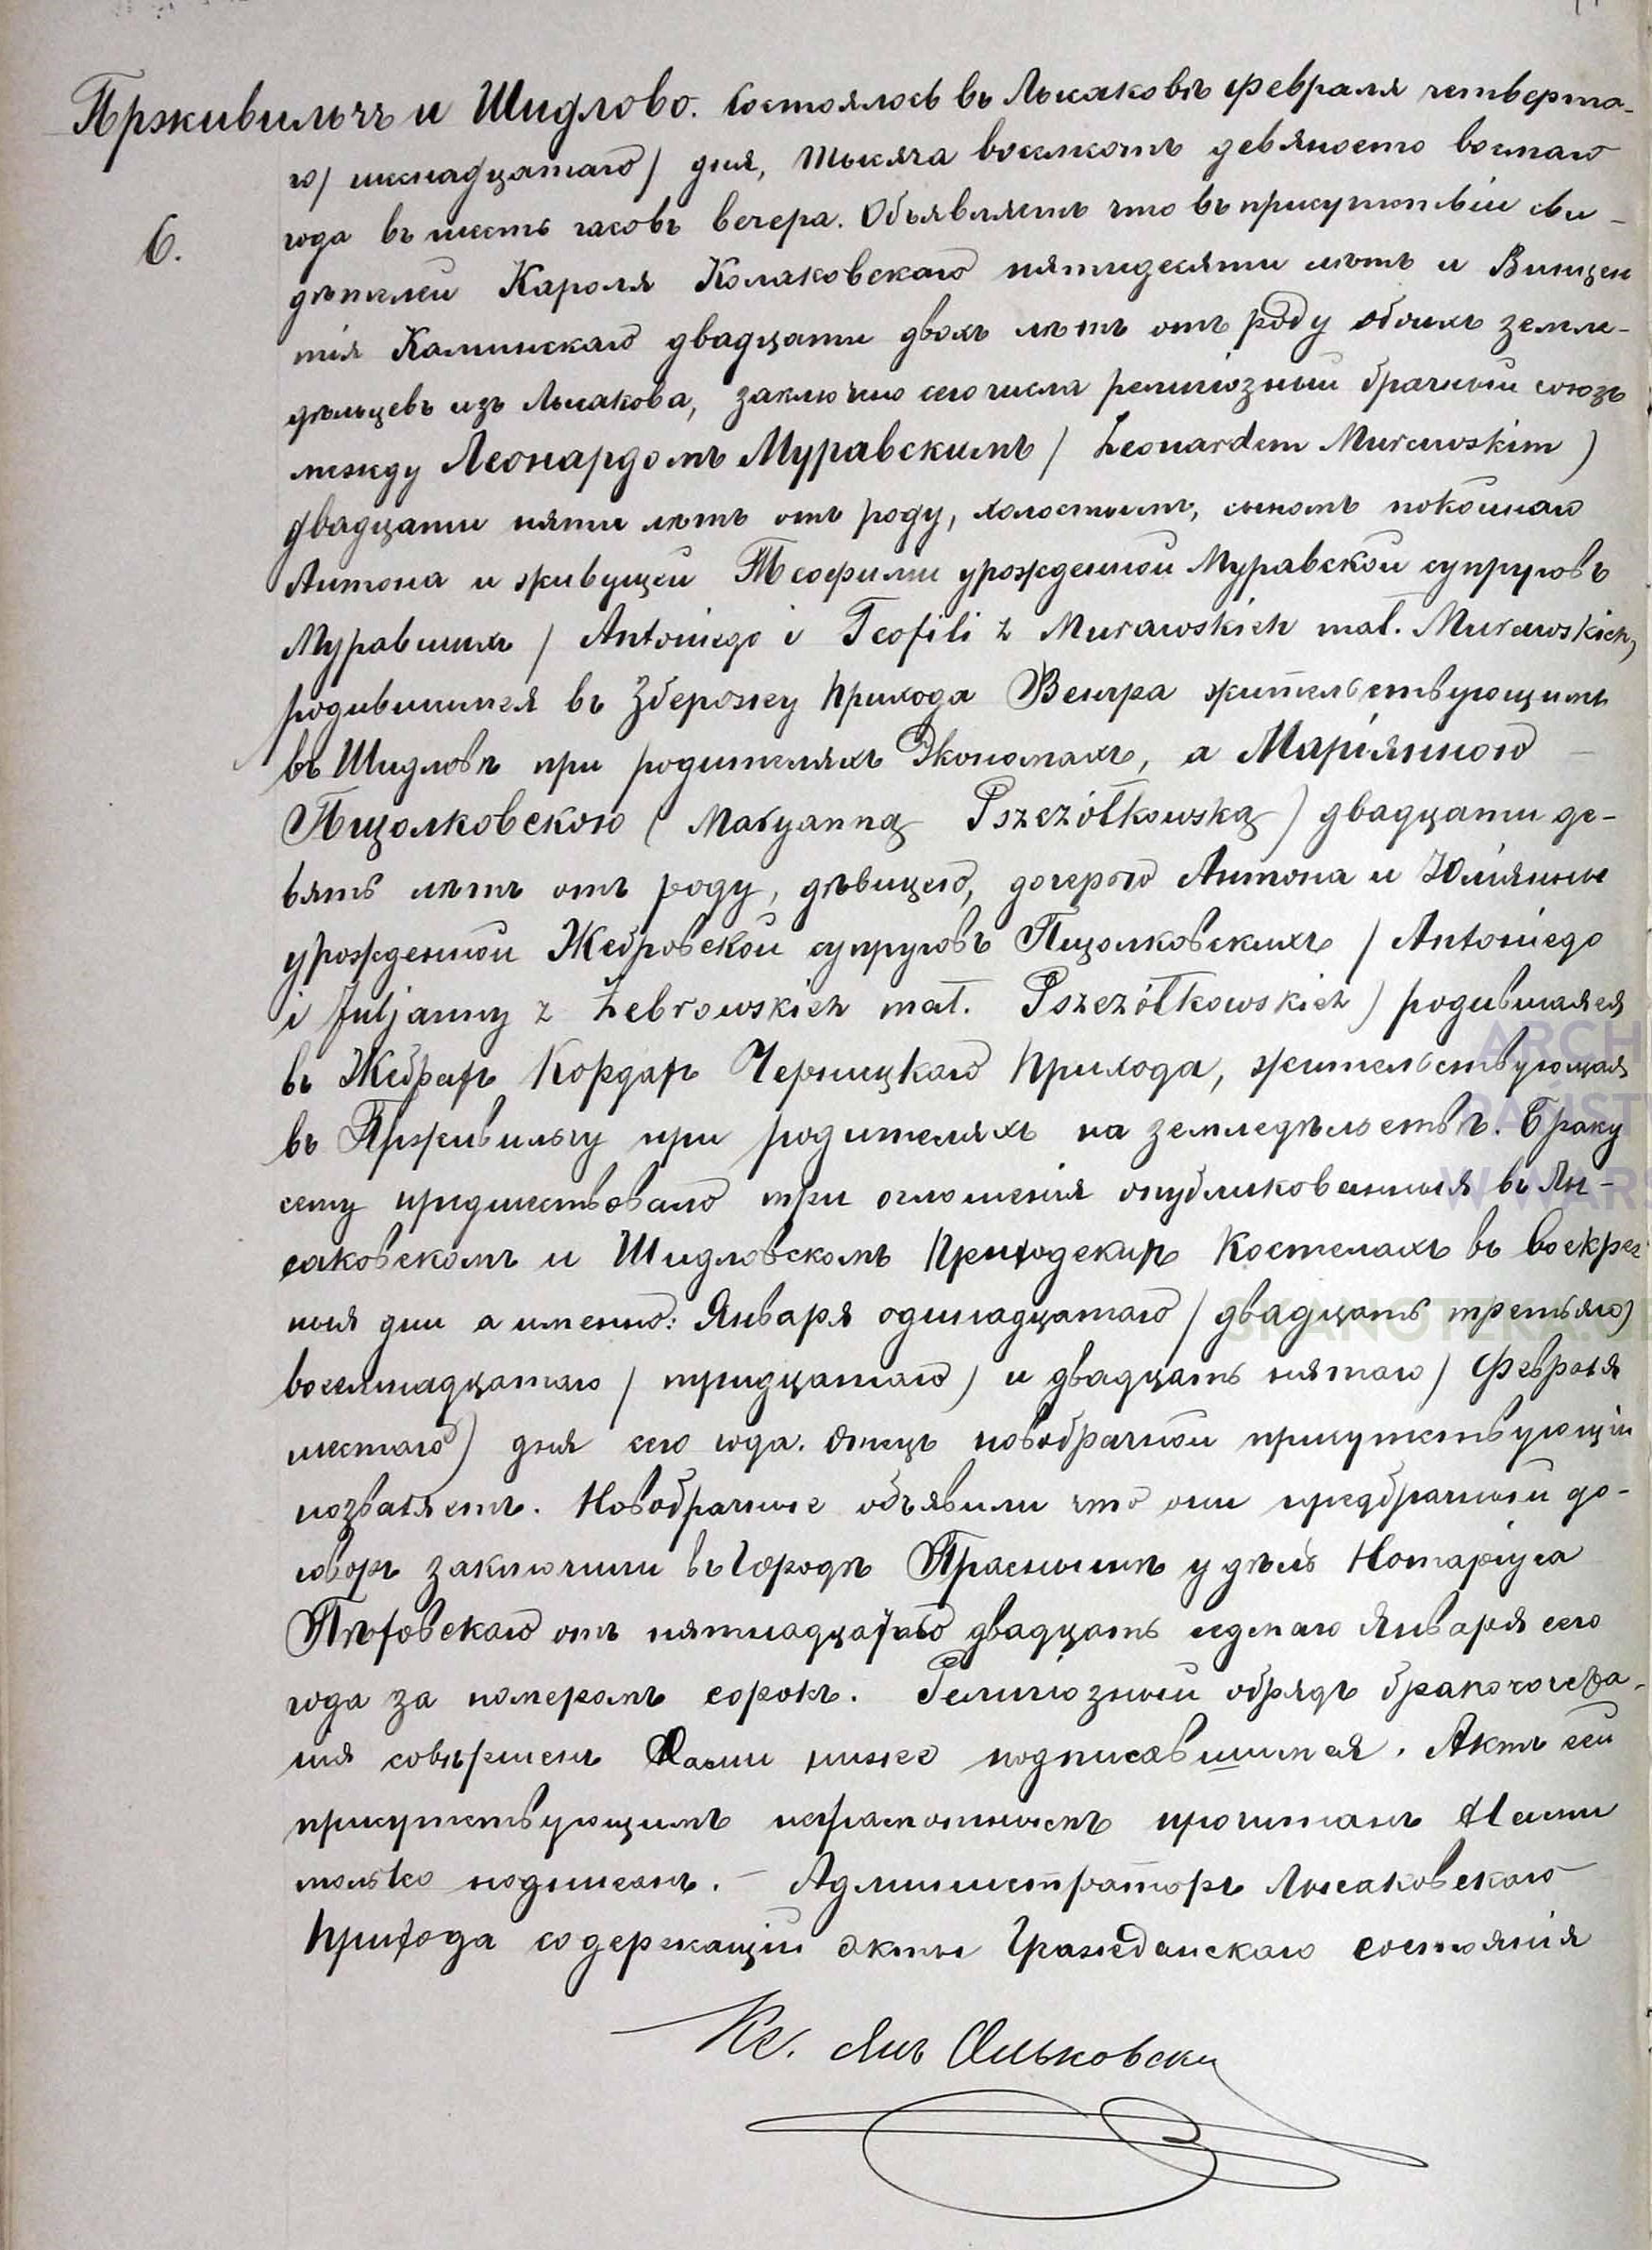 Прживильчъ и Шидлово. Состоялось въ Лысаковѣ февраля четверта-
го/ шеснадцатаго/ дня, тысяча восемсотъ девяносто восмаго
6.
года въ шесть часовъ вечера. Объявляемъ что въ присутствіи сви-
дѣтелей Кароля Колаковскаго пятидесяти лѣтъ и Винцен
тія Каминскаго двадцати двохъ лѣтъ отъ роду обоихъ земле-
дѣльцевъ изъ Лысакова, заключено сего числа религіозный брачный союзъ
между Леонардомъ Муравскимъ / Leonardem Murawskim )
двадцати пяти лѣтъ отъ роду, холостымъ, сыномъ покойнаго
Антона и живущей Теофили урожденной Муравской супруговъ
Муравскихъ / Antoniego i Teofili z Murawskich mał. Murawskich,
родившимся въ Зберожеу Прихода Венгра жительствующимъ
въ Шидловѣ при родителяхъ Экономахъ, а Маріянною
Пщолковскою ( Maryanną Pszczółkowską ) двадцати де-
вять лѣтъ отъ роду, дѣвицею, дочерью Антона и Юліянны
урожденной Жебровской супруговъ Пщолковскихъ / Antoniego
i Juljanny z Żebrowskich mał. Pszczółkowskich ) родившаяся
въ Жебрахъ Кордахъ Черницкаго Прихода, жительствующая
въ Прживильчу при родителяхъ на земледѣльствѣ. Браку
сему предшествовало три оглошенія опубликованныя въ Лы-
саковскомъ и Шидловскомъ Приходскихъ Костелахъ въ воскрес
ныя дни а именно: Января одинадцатаго / двадцать третьяго)
восемнадцатаго / тридцатаго) и двадцать пятаго / Февраля
шестаго) дня сего года. Отецъ новобрачной присутствующій
позваляетъ. Новобрачные объявили что они предбрачный до-
говоръ заключили въ Городѣ Праснышѣ у дѣлъ Нотаріуса
отъ пятнадцатаго двадцать седмаго Января сего
года за номеромъ сорокъ. Религіозный обрядъ бракосочета-
нія совѣршенъ Нами ниже подписавшимся. Актъ сей
присутствующимъ неграмотнымъ прочитанъ Нами
только подписанъ. - Администраторъ Лысаковскаго
Прихода содержащій акты Гражданскаго состоянія
Кс. Янъ